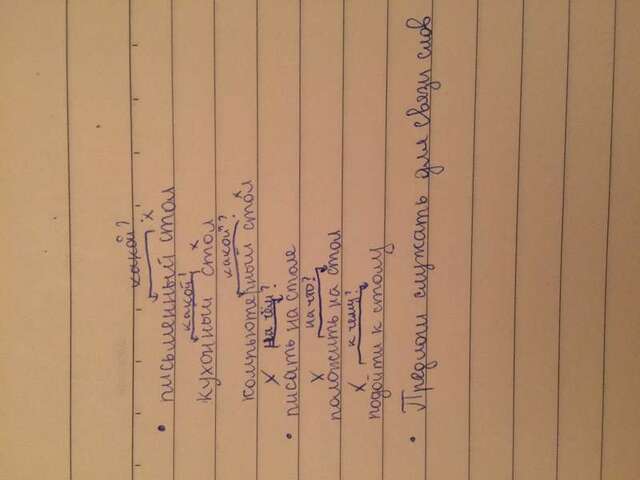 какой?
х
• письменный стол
какой?
х
кухонный стол
какой?
х
компьютерный стол
х на чём?
• писать на столе
х на что?
положить на стол
х к чему?
подойти к столу
• Предлоги служать для связи слов